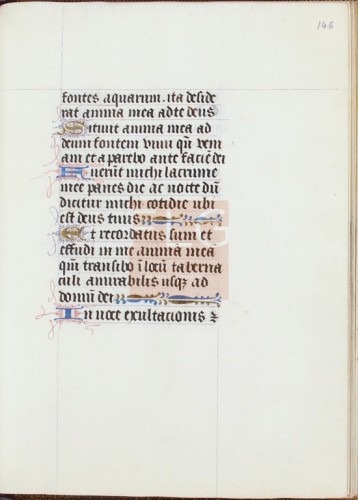 146
fontes aquarum. ita deside
rat anima mea ad te deus
Sitivit anima mea ad
deum fontem vivū qn̄ veni
am et aparebo ante faciē dei
Fuerūt michi lacrime
mee panes die ac nocte dū
dicitur michi cotidie ubi
est deus tuus
Et recordatus sum et
effudi in me animā mea
qm̄ transibo ī locū taberna
culi amirabilis usqꝫ ad
domū dei
In voce exultacionis ⁊